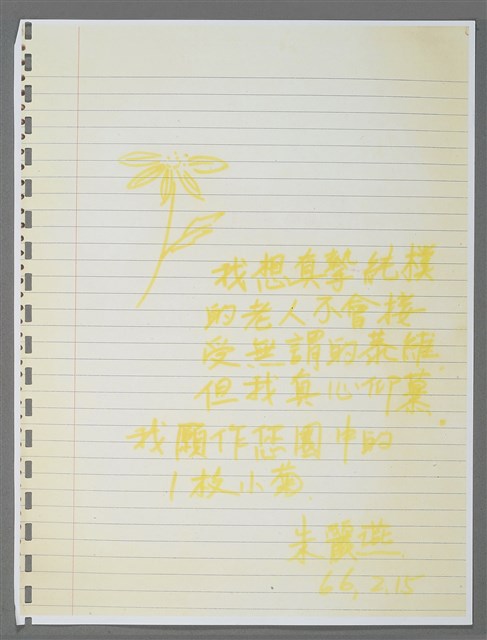 我想真摯純樸
的老人不會接
受無謂的恭維，
但我真心仰慕。
我願作您園中的
1枝小菊.
朱麗燕
66,2.15